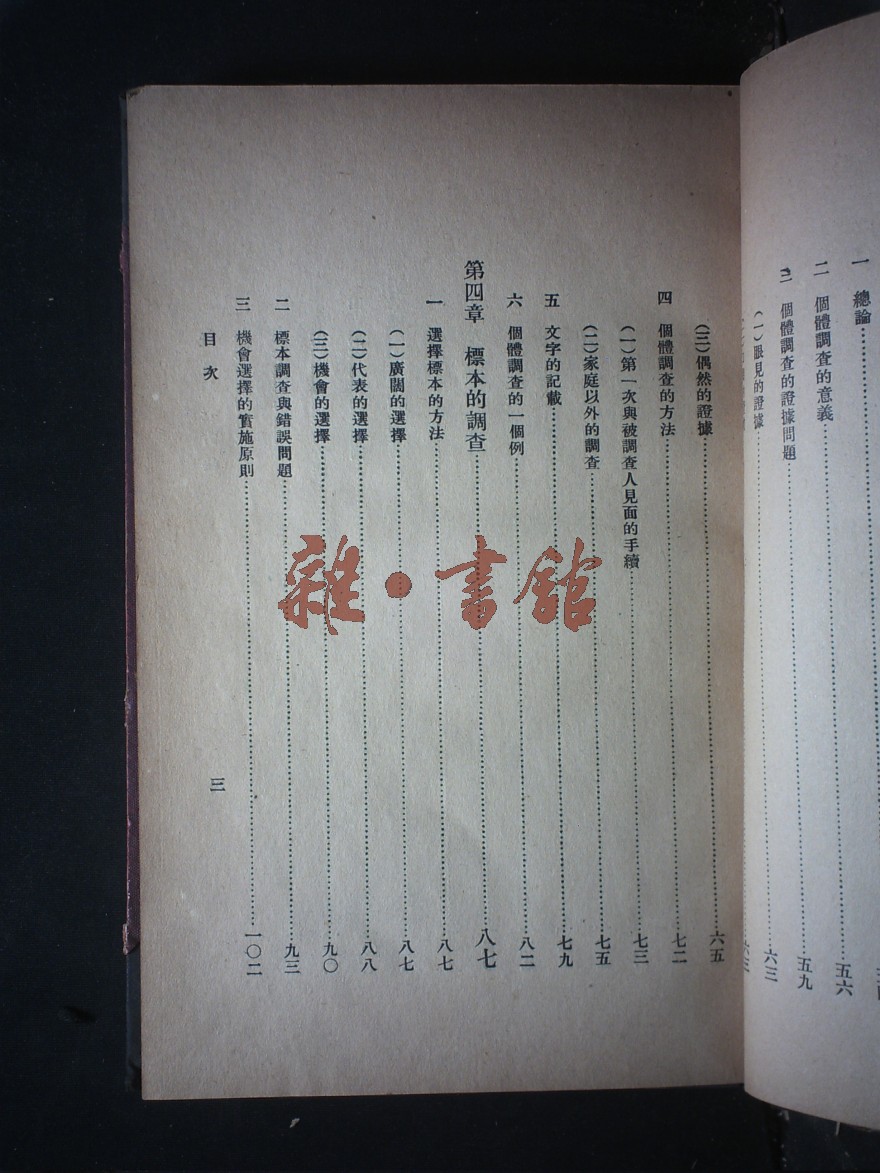 一　總論
二　個體調查的意義……五六
三　個體調查的證據問題……五九
（一）眼見的證據……六三
（三）偶然的證據……六五
四　個體調查的方法……七二
（一）第一次與被調查人見面的手續……七三
（二）家庭以外的調查……七五
五　文字的記載……七九
六　個體調查的一個例……八二
第四章　標本的調查……八七
一　選擇標本的方法……八七
（一）廣闊的選擇……八七
（二）代表的選擇……八八
（三）機會的選擇……九〇
二　標本調查與錯誤問題……九三
三　機會選擇的實施原則……一〇二
目次
三
雜·書館